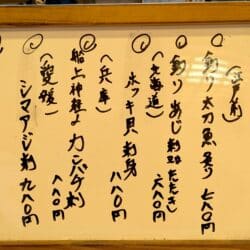 (江戸前)
◎釣り太刀魚炙り 七八〇円
◎釣りあじ 刺又はたたき 六八〇円
(北海道)
◎ホッキ貝刺身 八八〇円
(兵庫)
◎船上神経〆カンパチ刺 八八〇円
(愛媛)
◎シマアジ刺 九八〇円